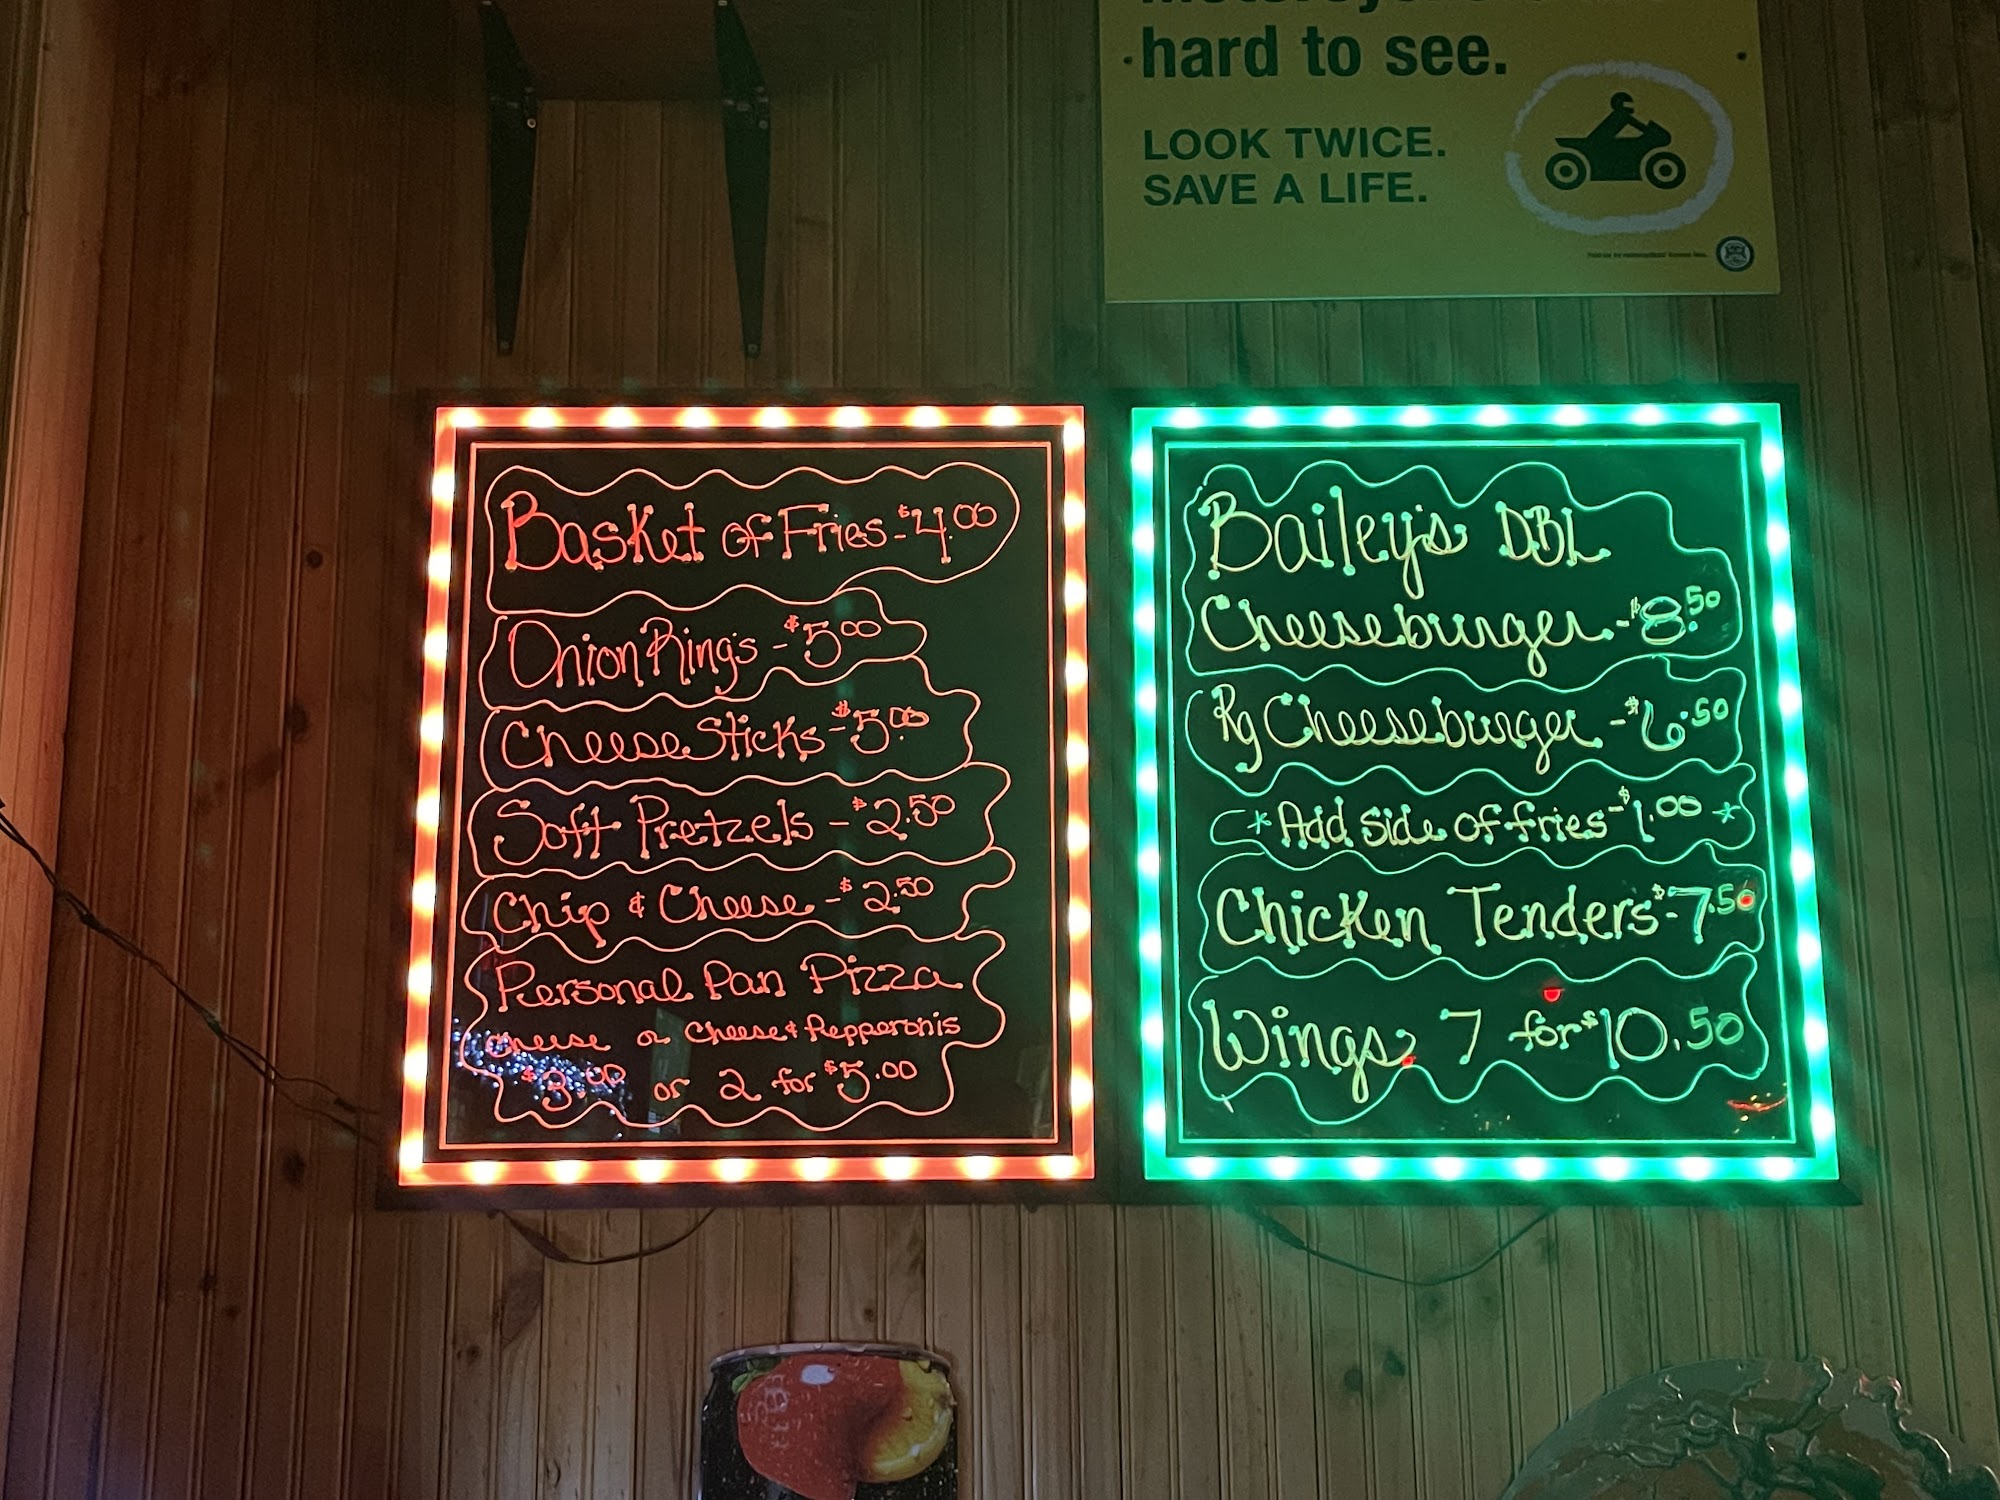 hard to see.
LOOK TWICE.
SAVE A LIFE.
Basket of Fries - $4.00
Onion Rings - $5.00
Cheese Sticks - $5.00
Soft Pretzels - $2.50
Chip & Cheese - $2.50
Personal Pan Pizza
cheese or Cheese & Pepperonis
$3.00 or 2 for $5.00
Bailey's DBL
Cheeseburger - $8.50
Rg Cheeseburger - $6.50
*Add side of fries - $1.00*
Chicken Tenders - $7.50
Wings 7 for $10.50